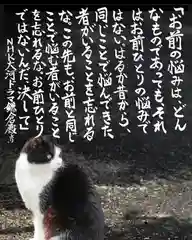 「お前の悩みは、どん
なものであっても、それ
はお前ひとりの悩みで
はない。はるか昔から、
同じことで悩んできた
者がいることを忘れる
な。この先も、お前と同じ
ことで悩む者がいること
を忘れるな。お前ひとり
ではないんだ、決して」
NHK大河ドラマ鎌倉殿